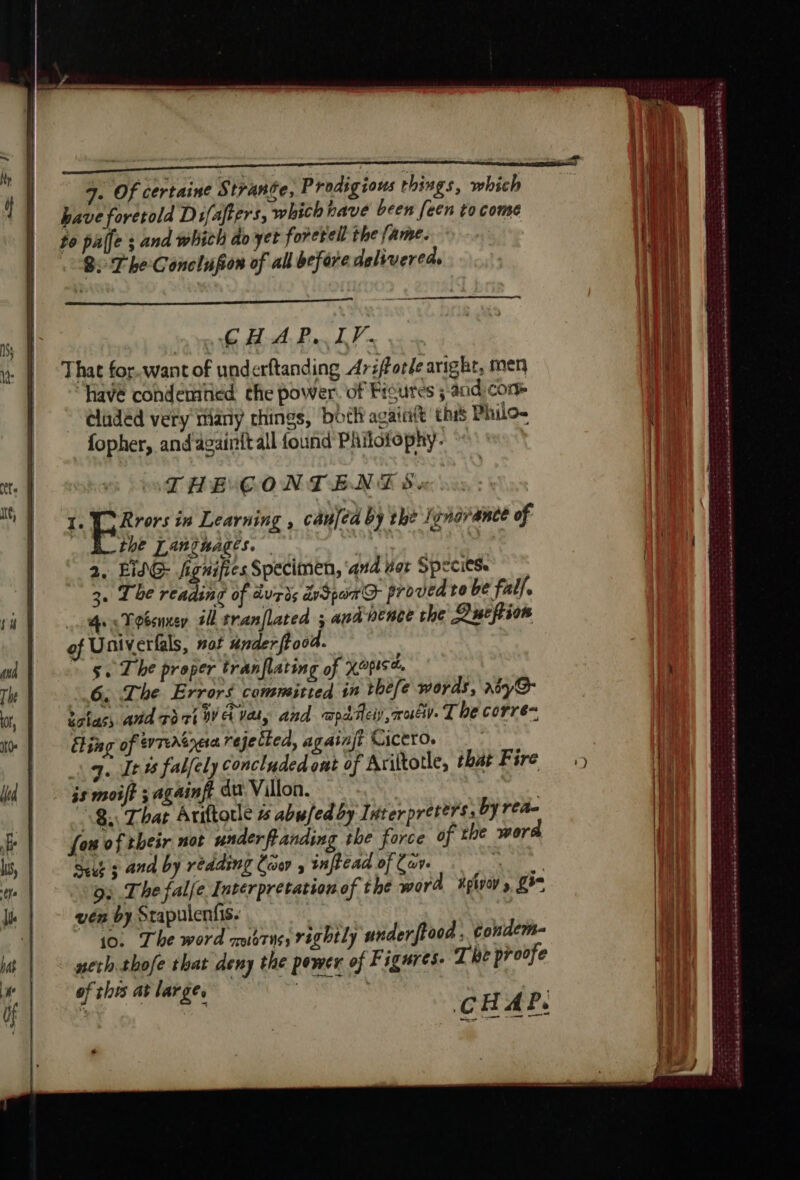 7. Of certaine Strange, Prodigious things, which
have foretold Diſaſters, which have been ſeen to come
to paſſe ; and which do yet foretell the ſame.
8. The Concluſion of all before delivered.
CHAP. IV.
That for want of underſtanding Ariſtotle aright, men
have condemned the power of Figures ; and con-
cluded very many things, both againſt this Philo-
ſopher, and againſt all ſound Philoſophy.
THE CONTENTS.
1. ERrors in Learning , cauſed by the Ignorance of
the Languages.
2. ΕἶδΘ- ſignifies Specimen, and not Species.
3. The reading of ἀυτὸς ἄνθρωπΘ- proved to be falſ.
4. ill tranſlated ; and hence the Queſtion
of Univerſals, not underſtood.
5. The proper tranſlating of χωριςά.
6. The Errors committed in theſe words, λόγΘ-
ἐσίας, and τὸ τί ἦν εἶναι, and πράττειν, ποιεῖν. The corre-
cting of ἐντελέχεια rejected, againſt Cicero.
7. It is falſely concluded out of Ariſtotle, that Fire
is moiſt ; againſt du Villon.
8. That Ariſtotle is abuſed by Interpreters, by rea-
ſon of their not underſtanding the force of the word
; and by reading ζῶον , inſtead of ζῶν.
9. The falſe Interpretation of the word , gi-
ven by Stapulenſis.
10. The word ποιότης, rightly underſtood , condem-
neth thoſe that deny the power of Figures. The proofe
of this at large.
CHAP.